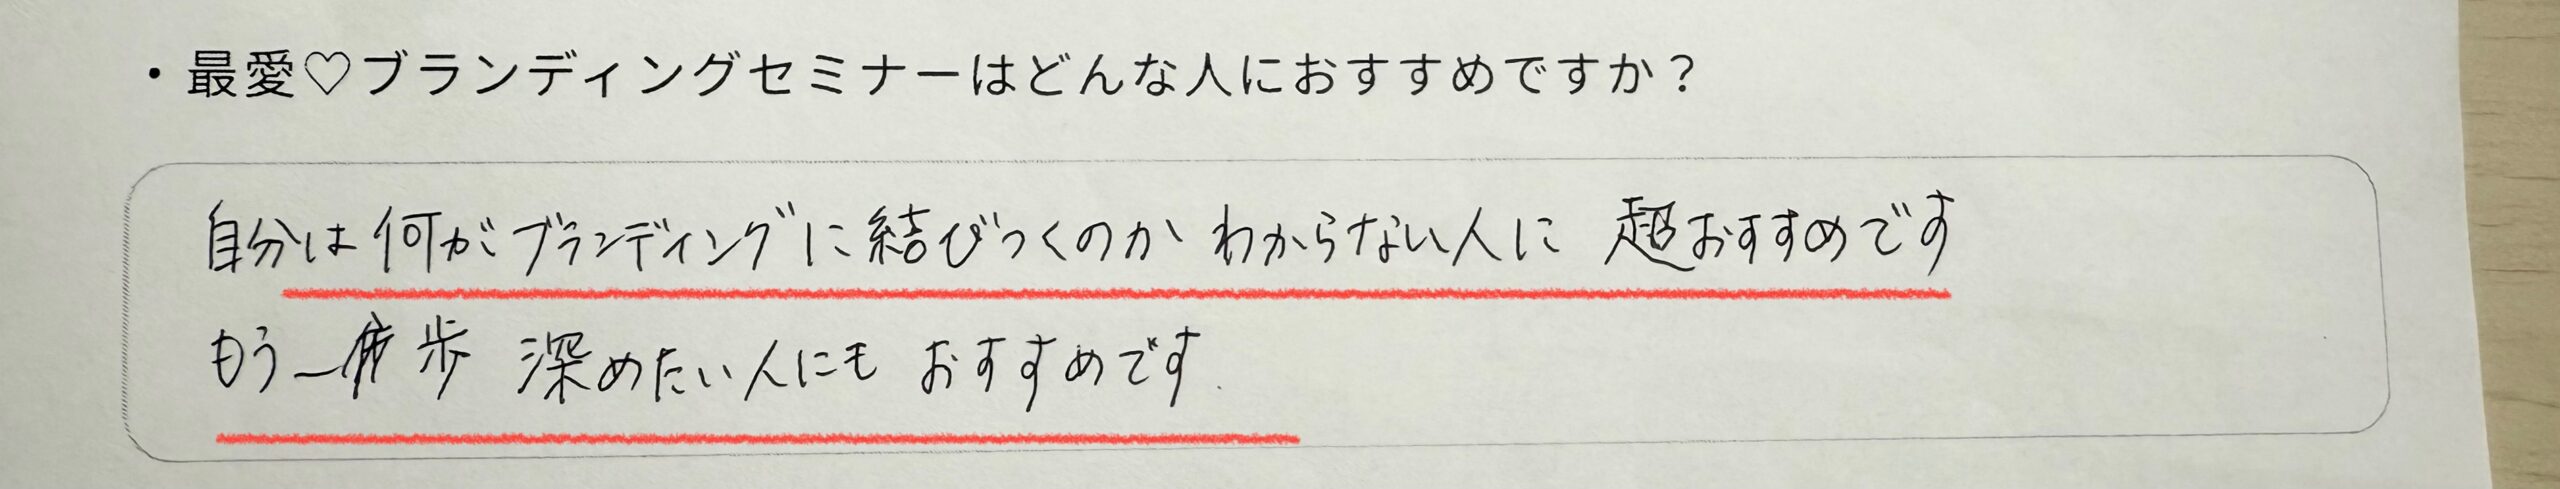 ・最愛♡ブランディングセミナーはどんな人におすすめですか？
自分は何がブランディングに結びつくのか わからない人に 超おすすめです
もう一歩 深めたい人にも おすすめです.